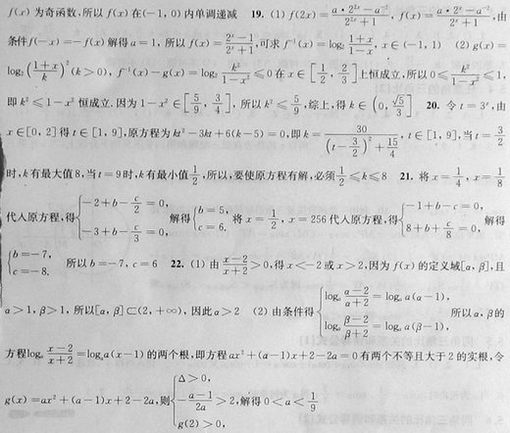 f(x) 为奇函数,所以 f(x) 在(-1, 0) 内单调递减 19. (1) f(2x) = \frac{a·2^{2x} - a^{-2}}{2^{2x}+1}, f(x) = \frac{a·2^x - a^{-2}}{2^x+1}, 由
条件 f(-x) = -f(x) 解得 a = 1, 所以 f(x) = \frac{2^x-1}{2^x+1}, 可求 f^{-1}(x) = log_2 \frac{1+x}{1-x}, x ∈ (-1, 1) (2) g(x) =
log_2 (\frac{1+x}{k})^2 (k > 0), f^{-1}(x) - g(x) = log_2 \frac{k^2}{1-x^2} ⩽ 0 在 x ∈ [\frac{1}{2}, \frac{2}{3}] 上恒成立, 所以 0 ⩽ \frac{k^2}{1-x^2} ⩽ 1,
即 k^2 ⩽ 1-x^2 恒成立. 因为 1-x^2 ∈ [\frac{5}{9}, \frac{3}{4}], 所以 k^2 ⩽ \frac{5}{9}, 综上, 得 k ∈ (0, \frac{\sqrt{5}}{3}] 20. 令 t = 3^x, 由
x ∈ [0, 2] 得 t ∈ [1, 9], 原方程为 kt^2 - 3kt + 6(k-5) = 0, 即 k = \frac{30}{(t-\frac{3}{2})^2 + \frac{15}{4}}, t ∈ [1, 9], 当 t = \frac{3}{2}
时, k 有最大值 8, 当 t = 9 时, k 有最小值 \frac{1}{2}, 所以, 要使原方程有解, 必须 \frac{1}{2} ⩽ k ⩽ 8 21. 将 x = \frac{1}{4}, x = \frac{1}{8}
代入原方程, 得 {-2+b-\frac{c}{2} = 0, -3+b-\frac{c}{3} = 0, 解得 {b = 5, c = 6. 将 x = \frac{1}{2}, x = 256 代入原方程, 得 {-1+b-c = 0, 8+b+\frac{c}{8} = 0, 解得
{b = -7, c = -8. 所以 b = -7, c = 6 22. (1) 由 \frac{x-2}{x+2} > 0, 得 x < -2 或 x > 2, 因为 f(x) 的定义域[α, β], 且
α > 1, β > 1, 所以[α, β] ⊂ (2, +∞), 因此 α > 2 (2) 由条件得 {log_a \frac{α-2}{α+2} = log_a a(α-1), log_a \frac{β-2}{β+2} = log_a a(β-1), 所以 α, β 的
方程 log_a \frac{x-2}{x+2} = log_a a(x-1) 的两个根, 即方程 ax^2 + (a-1)x + 2 - 2a = 0 有两个不等且大于 2 的实根, 令
g(x) = ax^2 + (a-1)x + 2 - 2a, 则 {Δ > 0, -\frac{a-1}{2a} > 2, g(2) > 0, 解得 0 < a < \frac{1}{9}